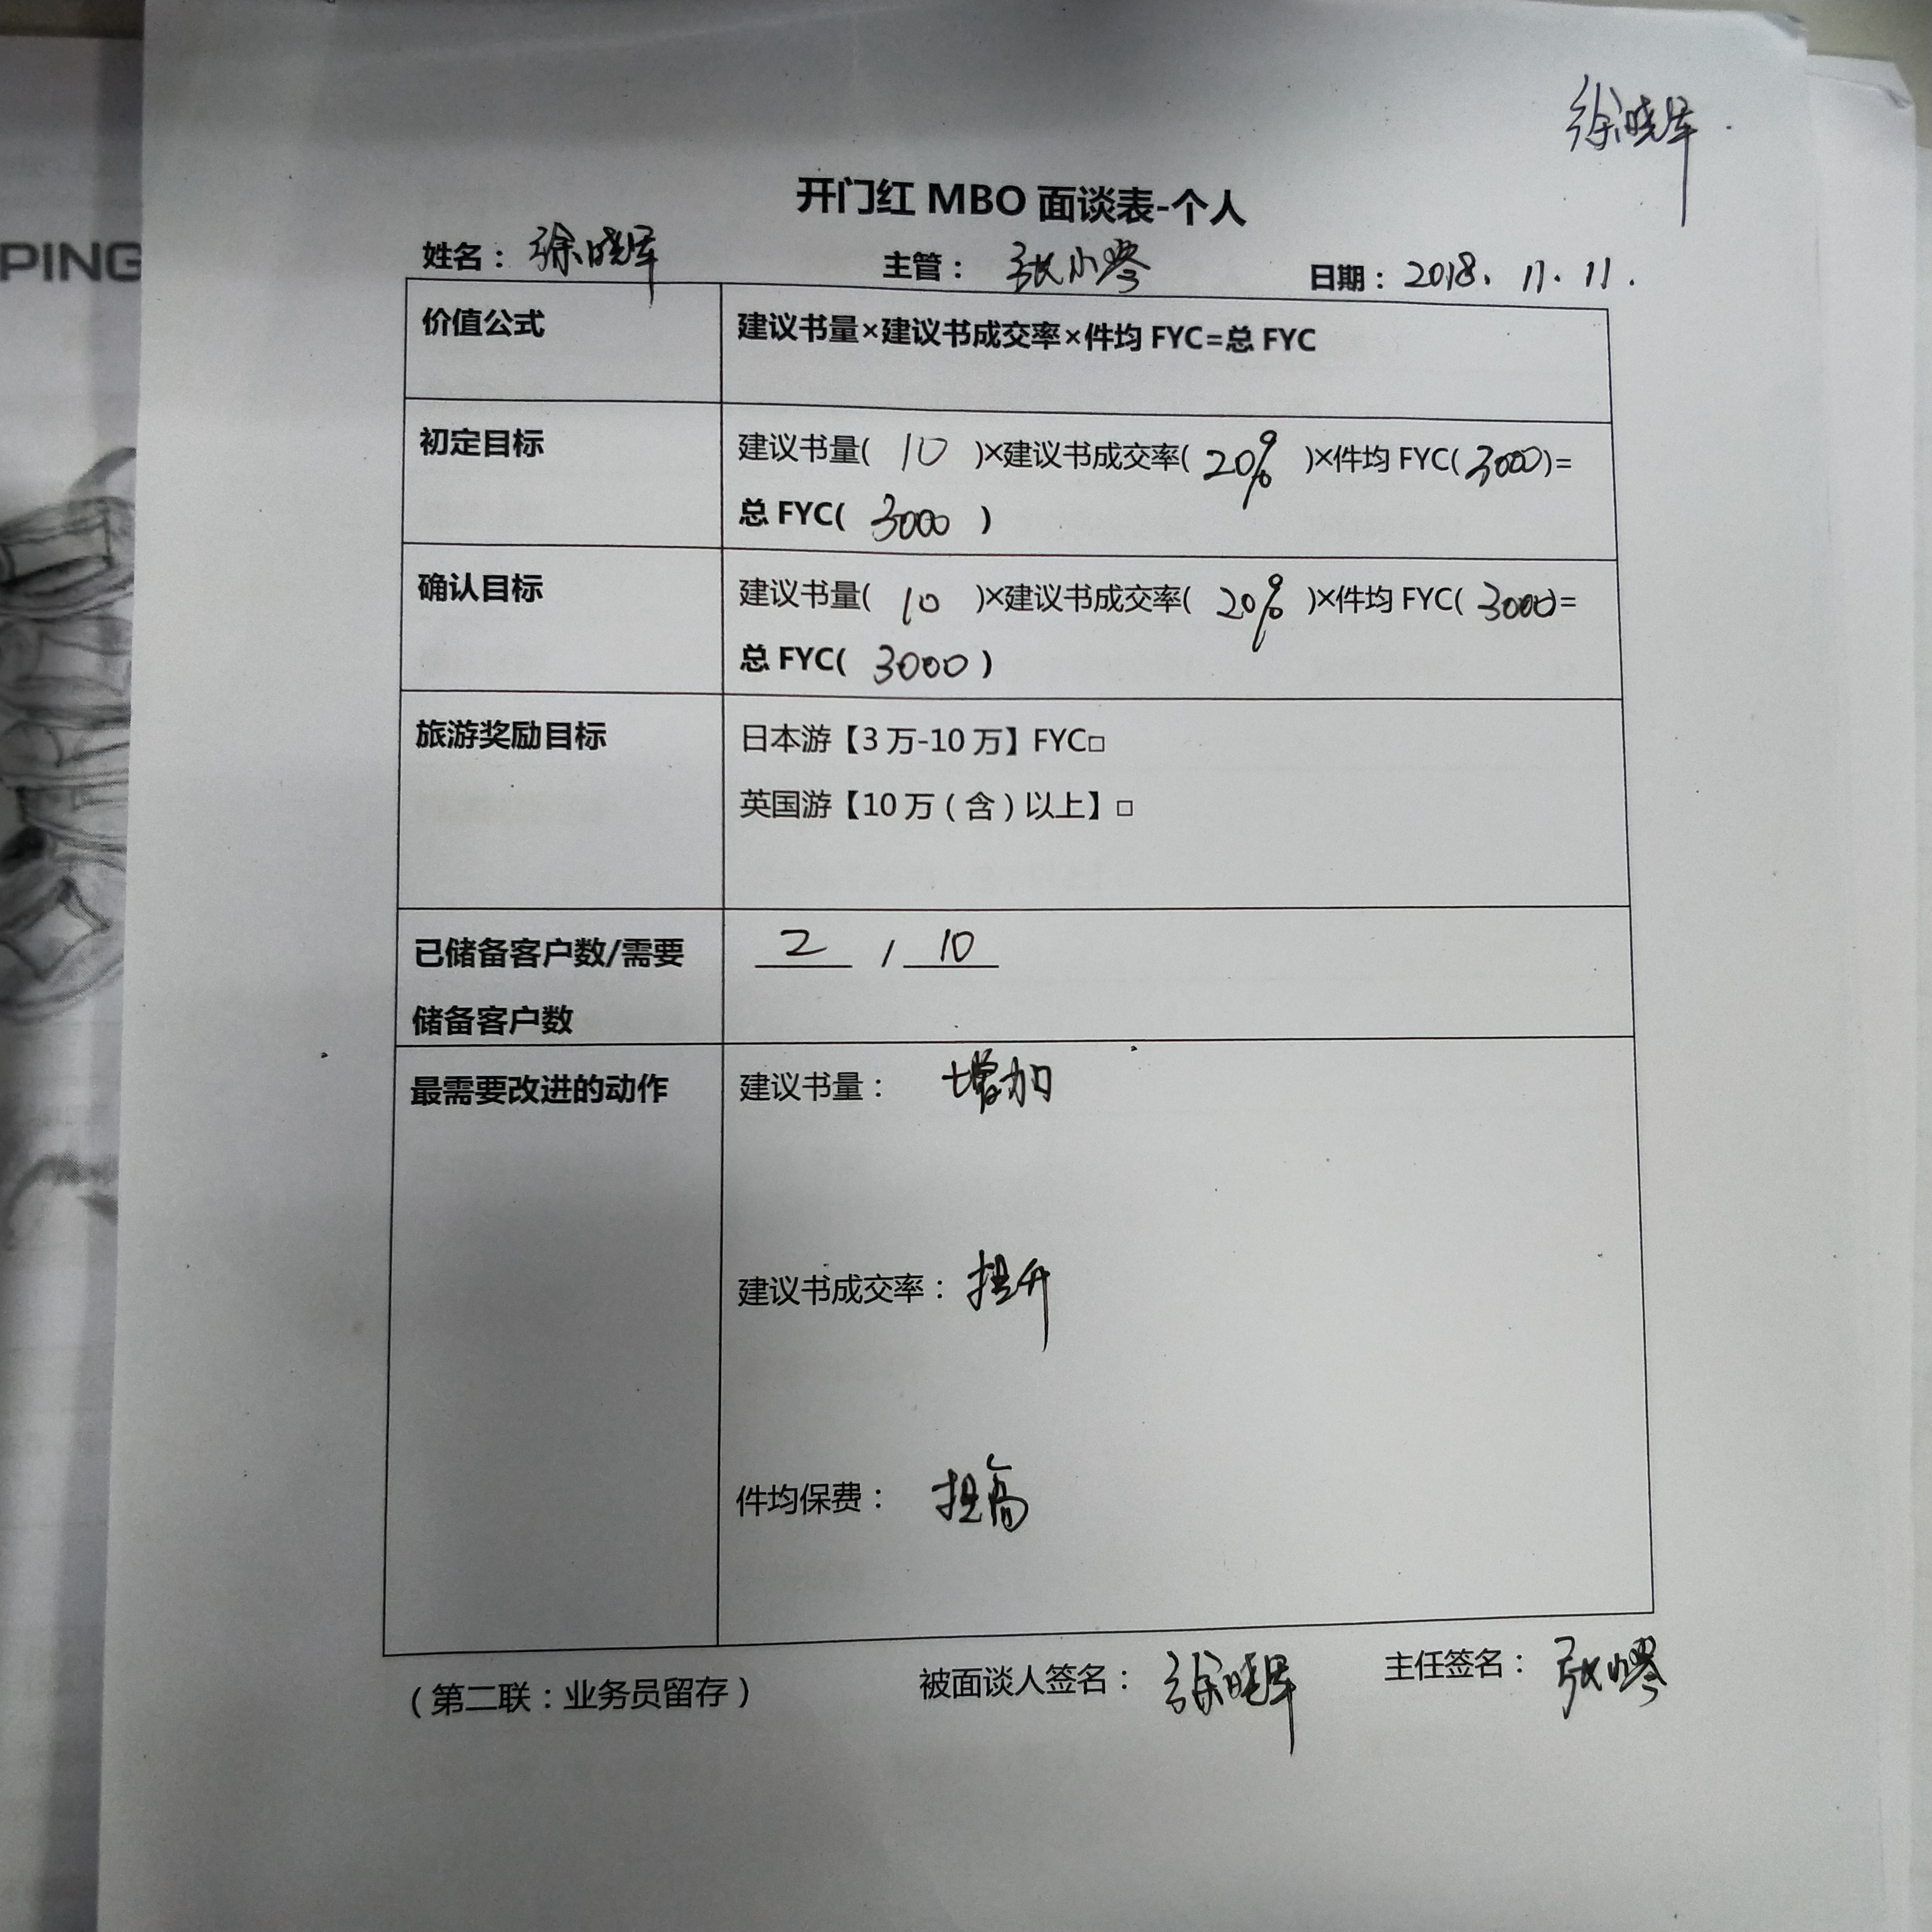 徐晓军
开门红 MBO 面谈表-个人
PING
姓名：徐晓军 主管：张小琴 日期：2018.11.11.
价值公式 建议书量×建议书成交率×件均 FYC=总 FYC
初定目标 建议书量( 10 )×建议书成交率( 20% )×件均 FYC( 3000)=
总 FYC( 3000 )
确认目标 建议书量( 10 )×建议书成交率( 20% )×件均 FYC( 3000)=
总 FYC( 3000 )
旅游奖励目标 日本游【3 万-10 万】FYC□
英国游【10 万（含）以上】□
已储备客户数/需要 2 / 10
储备客户数
最需要改进的动作 建议书量： 增加
建议书成交率：提升
件均保费： 提高
（第二联：业务员留存） 被面谈人签名：徐晓军 主任签名：张小琴